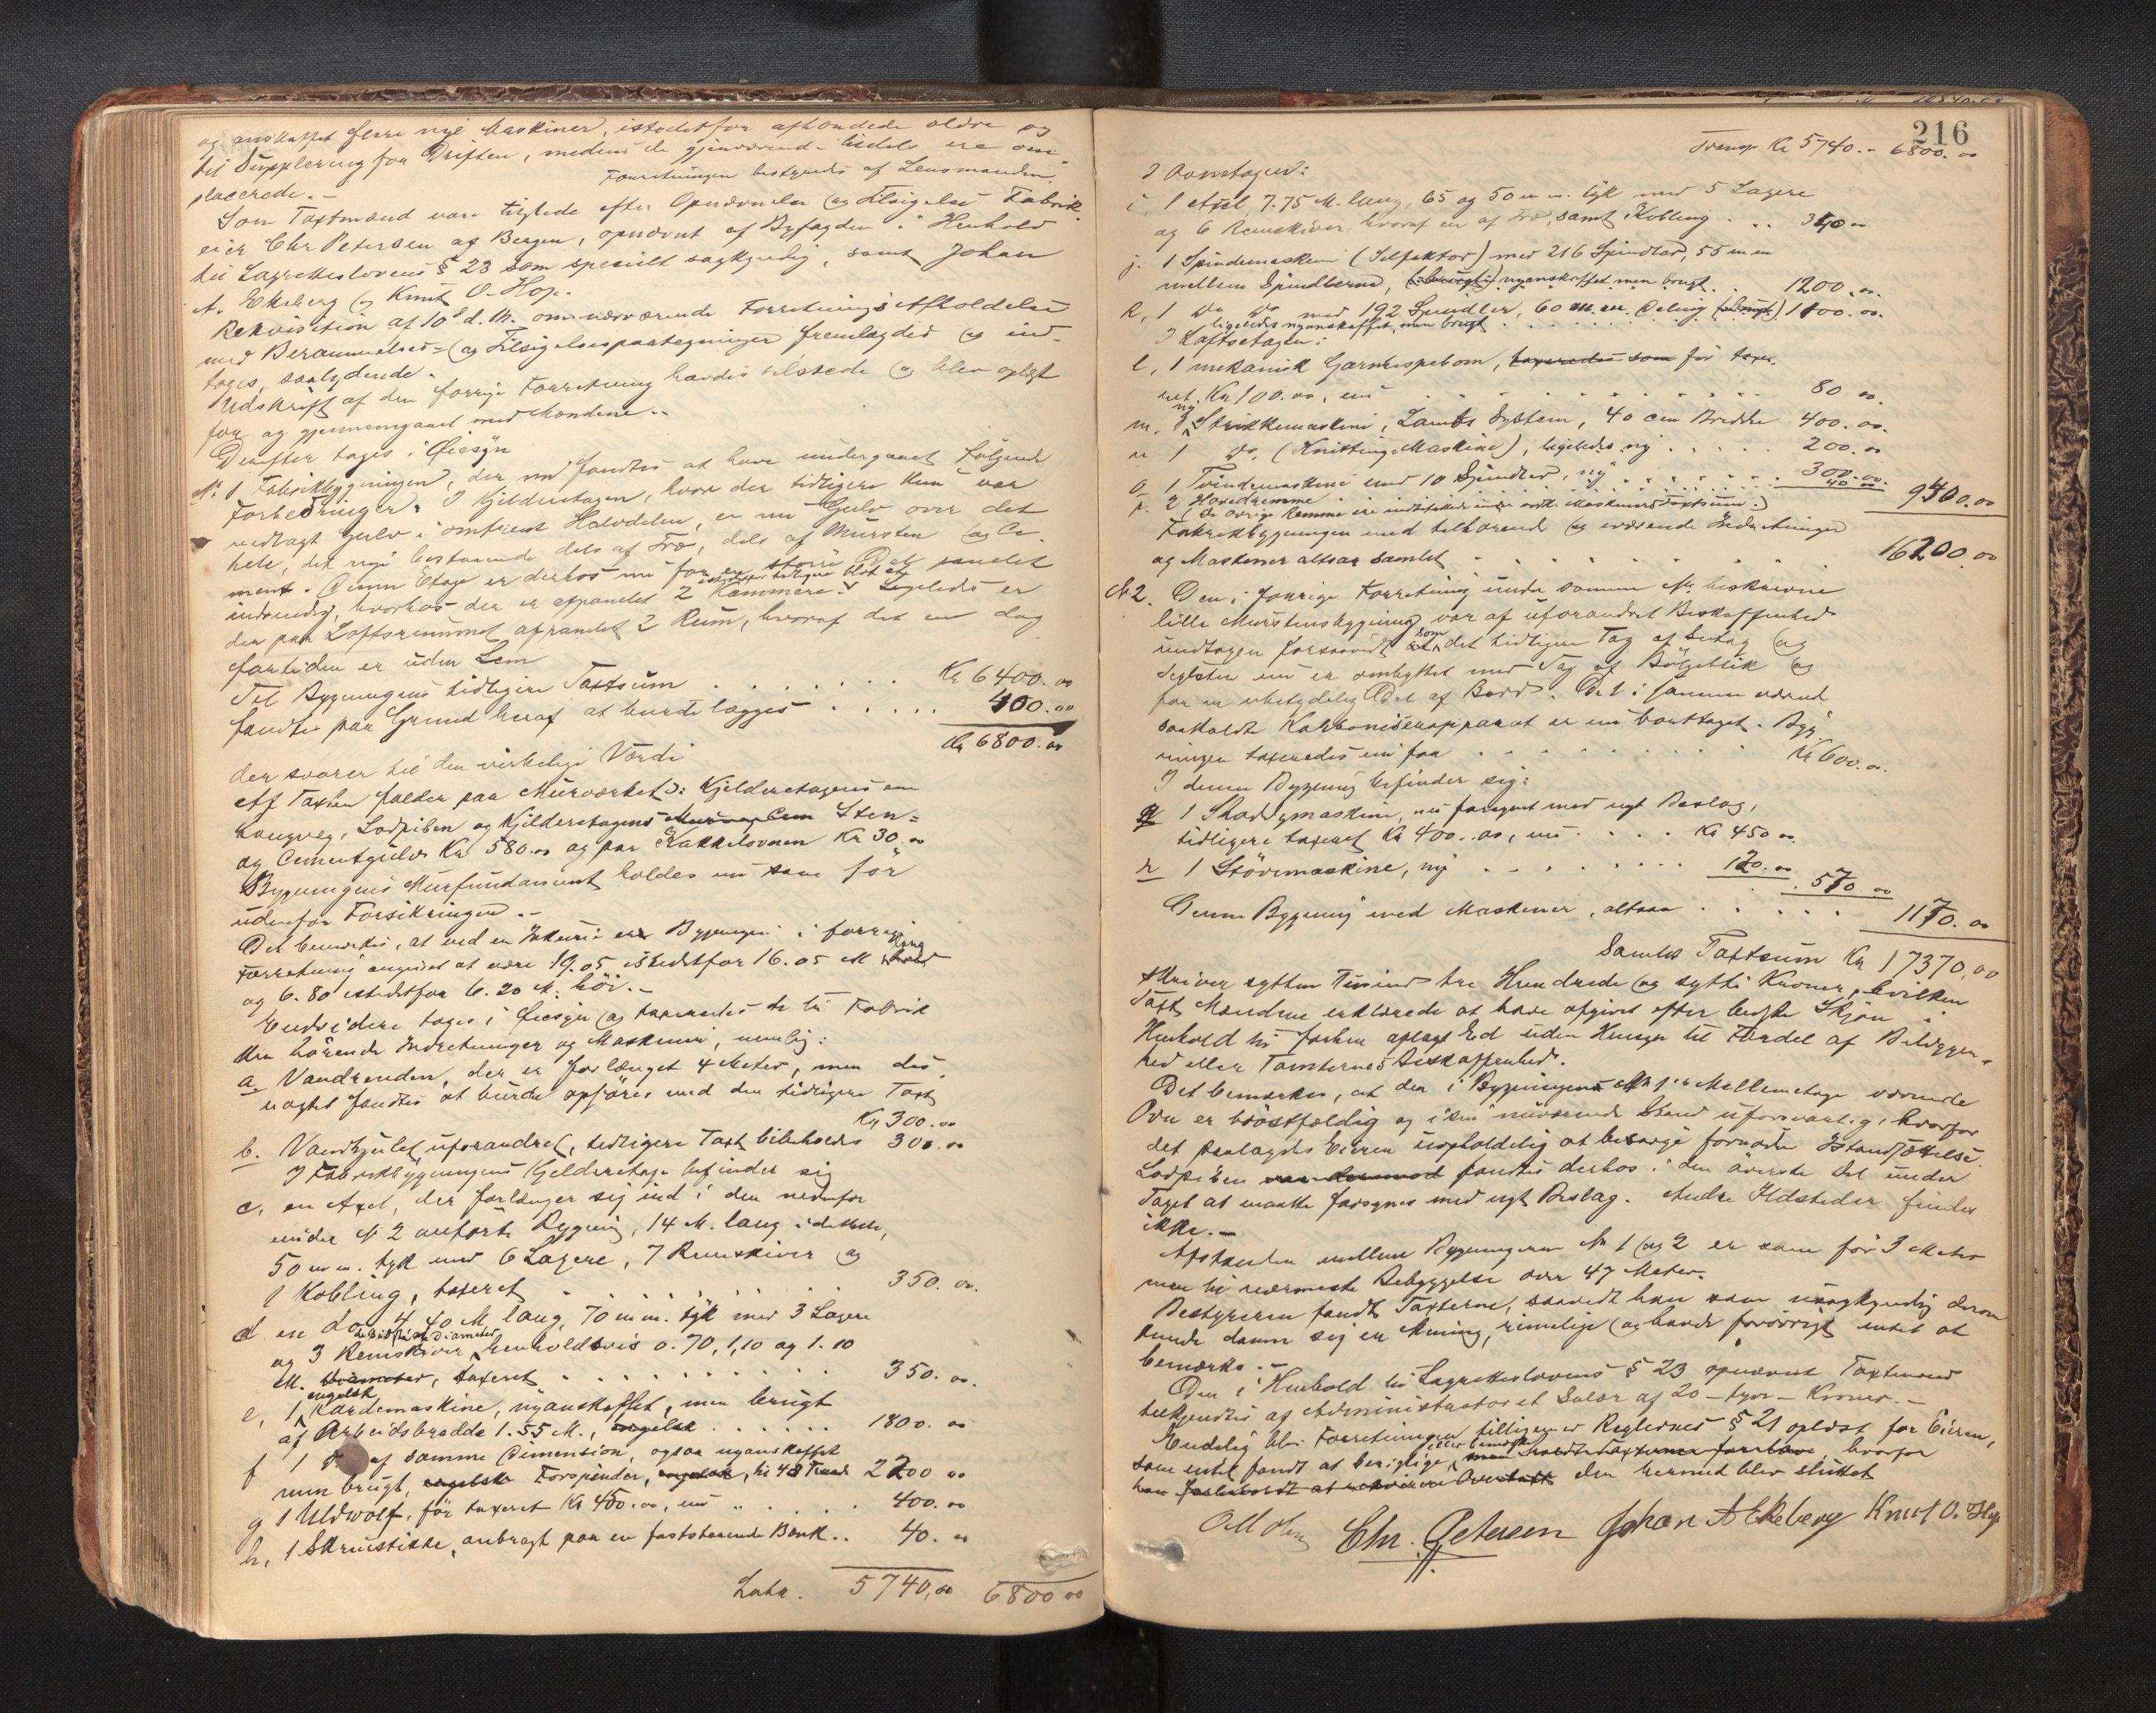 og anskaffet flere nye Maskiner, istedetfor afhændede ældre og
til Supplering for Driften, medens de gjenværende tildels ere om-
placerede.-
Forretningen bestyredes af Lensmanden.
Som Taxtmænd vare tilstede efter Opnævnelse og Tilsigelse Fabrik-
eier Chr Petersen af Bergen, opnævnt af Byfogden i Henhold
til Lagrettelovens § 23 som specielt sagkyndig, samt Johan
A. Ekeberg og Knut O. Hop.
Rekvisition af 10 d. M. om nærværende Forretnings Afholdelse
med Berammelses- og Tilsigelsespaategninger fremlagdes og ind-
tages, saalydende.
Udskrift af den forrige Forretning havdes tilstede og blev oplæst
for og gjennemgaaet med Mændene.-
Derefter toges i Øiesyn
No 1 Fabrikbygningen, der nu fandtes at have undergaaet følgende
Forbedringer. I Kjelderetagen, hvor der tidligere kun var
nedlagt Gulv i omtrent Halvdelen, er nu Gulv over det
hele, det nye bestaaende dels af Træ, dels af Mursten og Ce-
ment. Denne Etage er derhos nu for en større Del panelet
indvendig, hvorhos der er afpanelet 2 Kammere. Ligeledes er
der paa Loftsrummet afpanelet 2 Rum, hvoraf det ene dog
for tiden er uden Lem
Til Bygningens tidligere Taxtsum . . . . . . Kr 6400.00
fandtes paa Grund heraf at burde lægges . . . . . 400.00
Kr 6800.00
der svarer til den virkelige Værdi
Af Taxten falder paa Murværket: Kjelderetagens ene
Langvæg, Lodpiben og Kjelderetagens Sten-
og Cementgulv Kr 580.00 og paa Kakkelovnen Kr 30.00
Bygningens Murfundament holdes nu som før
udenfor Forsikringen.-
Det bemærkes, at ved en Inkurie er Bygningen i forrige
Forretning angivet at være 19.05 istedetfor 16.05 M lang
og 6.80 istedetfor 6.20 M. høi.-
Endvidere toges i Øiesyn og taxeredes de til Fabrik
ken hørende Indretninger og Maskiner, nemlig:
a. Vandrenden, der er forlænget 4 Meter, men des
uagtet fandtes at burde opføres med den tidligere Taxt
Kr 300.00
b. Vandhjulet uforandret, tidligere Taxt bibeholdes 300.00
I Fabrikbygningens Kjelderetage befinder sig
c, en Axel, der forlænger sig ind i den nedenfor
under No 2 anførte Bygning, 14 M. lang,
50 m.m. tyk med 6 Lagere, 7 Remskiver og
1 Kobling, taxeret . . . . . . . 350.00
d en do 4,40 M lang, 70 m.m. tyk med 3 Lagere
og 3 Remskiver, henholdsvis 0.70, 1,10 og 1.10
M. Diameter, taxeret . . . . . . . 350.00
e, 1 engelsk Kardemaskine, nyanskaffet, men brugt
af Arbeidsbredde 1.55 M., engelsk . . . . . 1800.00
f 1 do af samme Dimension, ogsaa nyanskaffet
men brugt, engelsk Forspinder, til 48 Traad 2200 00
g 1 Uldwolf, før taxeret Kr 450.00, nu . . . . 400.00
h, 1 Skruestikke, anbragt paa en faststaaende Bænk . . 40.00
Lata. 5740,00 6800 00
216
Transp Kr 5740.- 6800.00
I 1ste Etage:
i 1 Axel 7.75 M. lang, 65 og 50 m.m. tyk med 5 Lagere
og 6 Remskiver, hvoraf en af Træ, samt Kobling . . . 340 00
j. 1 Spindemaskine (Selfaktor) med 216 Spindler, 55 m m
mellem Spindlerne, nyanskaffet men brugt . . 1200.00.
k, 1 do do med 192 Spindler, 60 m.m. Deling 1100.00.
ligeledes nyanskaffet, men brugt
I Loftsetagen:
l, 1 mekanisk Garnhespebom, taxeredes som før taxe-
ret Kr 100.00, nu . . . . . . . . 80 00.
m. 1 ny Strikkemaskine, Lambs System, 40 cm Bredde 400.00.
n 1 do, (Knitting Maskine), ligeledes ny . . . . . 200.00
o 1 Tvindemaskine med 10 Spindler, ny . . . . . 300.00.
p. 2 Hovedremme . . . . . . . 40 00
(De øvrige Remme ere indbefattede under Maskinernes Taxtsum.) 9400.00
Fabrikbygningen med tilhørende og værende Indretninger
og Maskiner altsaa samlet . . . . . . . 16200.00
No 2. Den i forrige Forretning under samme No. beskrevne
lille Murstensbygning var af uforandret Beskaffenhed
undtagen forsaavidt som det tidligere Tag af Sutag og
Teglsten nu er ombyttet med Tag af Bølgeblik og
for en ubetydelig Del af Bord. Det i samme værende
saakaldt Karboniserapparat er nu borttaget. Byg-
ningen taxeredes nu for . . . . . . . Kr 600.00.
I denne Bygning befinder sig:
q 1 Shoddymaskine, nu forsynet med nyt Beslag,
tidligere taxeret Kr 400.00, nu . . . . Kr 450 00.
r 1 Støvemaskine, ny . . . . . . . 120.00
570 00
Denne Bygning med Maskiner, altsaa . . . . . 1170.00
Samlet Taxtsum Kr 17370,00
skriver sytten Tusinde tre Hundrede og sytti Kroner, hvilken
Taxt Mændene erklærede at have afgivet efter bedste Skjøn i
Henhold til forhen aflagt Ed uden Hensyn til Fordel af Beliggen-
hed eller Tomternes Beskaffenhed.
Det bemærkes, at den i Bygningens No 1's Mellemetage værende
Ovn er brøstfældig og i sin nuværende Stand uforsvarlig, hvorfor
det paalagdes Eieren uopholdelig at besørge fornøden Istandsættelse.
Lodpiben var derimod fandtes derhos i den øverste Del under
Taget at maatte forsynes med nyt Beslag. Andre Ildsteder findes
ikke.-
Afstanden mellem Bygningerne No 1 og 2 er som før 3 Meter
men til nærmeste Bebyggelse over 47 Meter.
Bestyreren fandt Taxterne, saavidt han som usagkyndig derom
kunde danne sig en Mening, rimelige og havde forøvrigt intet at
bemærke.-
Den i Henhold til Lagrettelovens § 23 opnævnt Taxtmand
tilkjendtes af Administrator et Salær af 20 - tyve - Kroner.-
Endelig blev Forretningen tilligemed Reglernes § 21 oplæst for Eieren,
som intet fandt at berigtige eller bemærke, hvorfor
han forbeholdt at rekvirere Overtaxt den hermed blev sluttet
Chr. Petersen Johan A Ekeberg Knut O. Hop